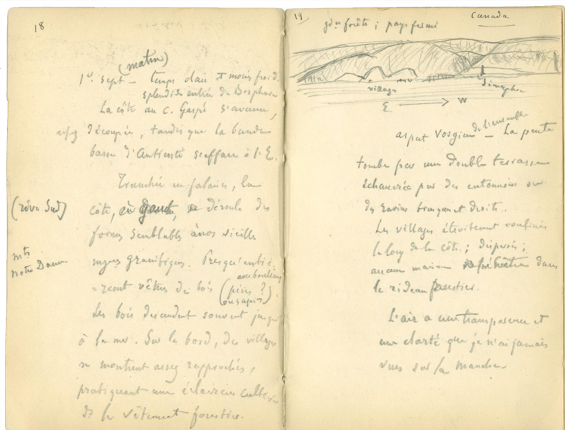 18
(matin)
1er sept – temps clair et moins froid
splendide entrée du
La côte au C. Gaspé s'avance,
découpée, tandis que la bande
basse d'Anticosti s'efface à l'E.
Tranchée en falaise, la
(rive Sud)
côte, se déroule des
formes semblables à nos vieilles
mts
Notre Dame
granitiques. Presqu'entiè-
rement vêtus de bois (pins ?)
ou sapins
Les bois descendent souvent jusqu'
à la mer. Sur le bord, des villages
se montrent assez rapprochés,
pratiquant une éclaircie
de le vêtement forestier.
19
Canada
gdes forêts ; pays fermé
village
E. → W
aspect Vosgien de l'ensemble – La pente
tombe par une double terrasse
échancrée par des entonnoirs ou
des ravins tronçonnés droits.
Les villages étroitement confinés
le long de la côte ; dispersés ;
aucune maison dans
le rideau forestier.
L'air a une transparence et
une clarté que je n'ai jamais
vues sur la Manche.